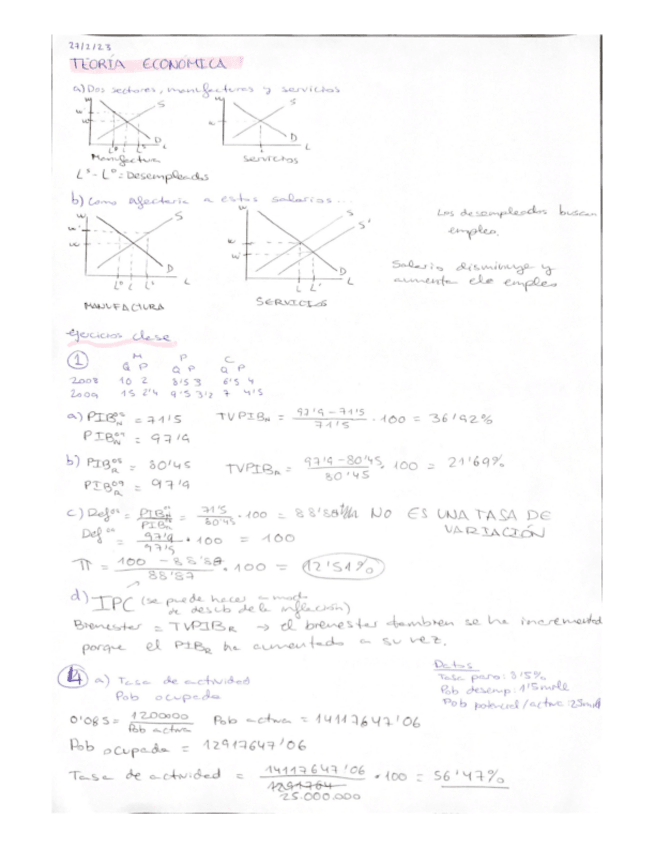 27/2/23
TEORÍA ECONÓMICA
a) Dos sectores, manufacturas y servicios
W S W S
w' w w
D D
L^D L L^S L L L
Manufactura Servicios
L^S - L^D = Desempleados
b) Como afectaría a estos salarios...
W S W S S'
w' w
D D
L^D L L^S L L L' L
MANUFACTURA SERVICIOS
Los desempleados buscan
empleo.
Salario disminuye y
aumenta el empleo
Ejercicios clase
1 M P C
Q P Q P Q P
2008 10 2 8'5 3 6'5 4
2009 15 2'4 9'5 3'2 7 4'5
a) PIB_N^08 = 71'5 TVPIB_N = 97'9 - 71'5 / 71'5 · 100 = 36'92%
PIB_N^09 = 97'9
b) PIB_R^08 = 80'45 TVPIB_R = 97'9 - 80'45 / 80'45 · 100 = 21'69%
PIB_R^09 = 97'9
c) Def = PIB_N / PIB_R = 71'5 / 80'45 · 100 = 88'88 NO ES UNA TASA DE
VARIACIÓN
Def = 97'9 / 97'9 · 100 = 100
π = 100 - 88'88 / 88'87 · 100 = 12'51%
d) IPC (se puede hacer a modo
de descib de la inflación)
Bienestar = TVPIB_R → el bienestar tambien se ha incrementado
porque el PIB_R ha aumentado a su vez.
4 a) Tasa de actividad
Pob ocupada
Datos
Tasa paro: 8'5%
Pob desemp: 1'5 mill
Pob potencial/activa: 25 mill
0'085 = 1200000 / Pob activa Pob activa = 14117647'06
Pob ocupada = 12917647'06
Tasa de actividad = 14117647'06 / 25.000.000 · 100 = 56'47%